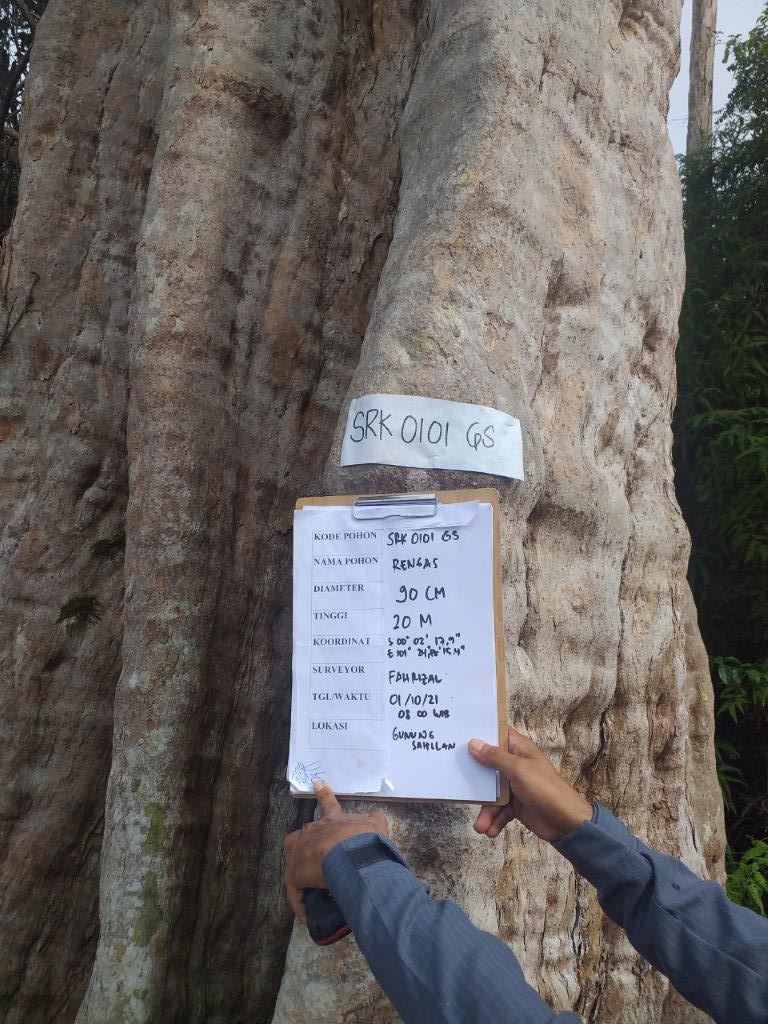 SRK 0101 GS
KODE POHON SRK 0101 GS
NAMA POHON RENGAS
DIAMETER 90 CM
TINGGI 20 M
KOORDINAT S 00° 02' 17,9"
E 101° 15.4"
SURVEYOR FAHRIZAL
TGL/WAKTU 01/10/21
08 00 WIB
LOKASI GUNUNG
SAHILAN